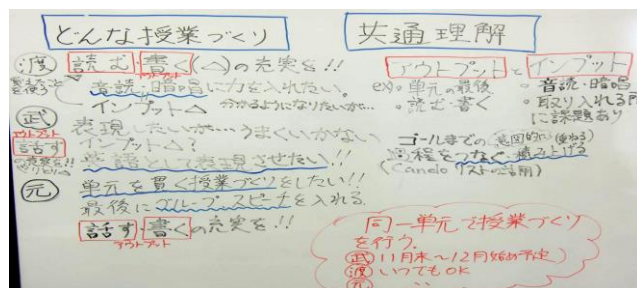 どんな授業づくり
渡 読む・書く(△)の充実を!!
アウトプット
音読・暗唱に力を入れたい。
インプット△ 分かるようになりたいが…
武 表現したいが…うまくいかない
アウトプット
話す
インプット△?
英語として表現させたい!!
元 単元を貫く授業づくりをしたい!!
最後にグループスピーチを入れる
話す・書くの充実を!!
アウトプット
共通理解
アウトプットとインプット
ex)・単元の最後
・読む・書く
・音読・暗唱
・取り入れる所に課題あり
ゴールまでの
過程をつなぐ・積み上げる
(Candoリストの活用)
同一単元で授業づくり
を行う。
武 11月末〜12月始め予定)
渡 いつでもOK
元 〃